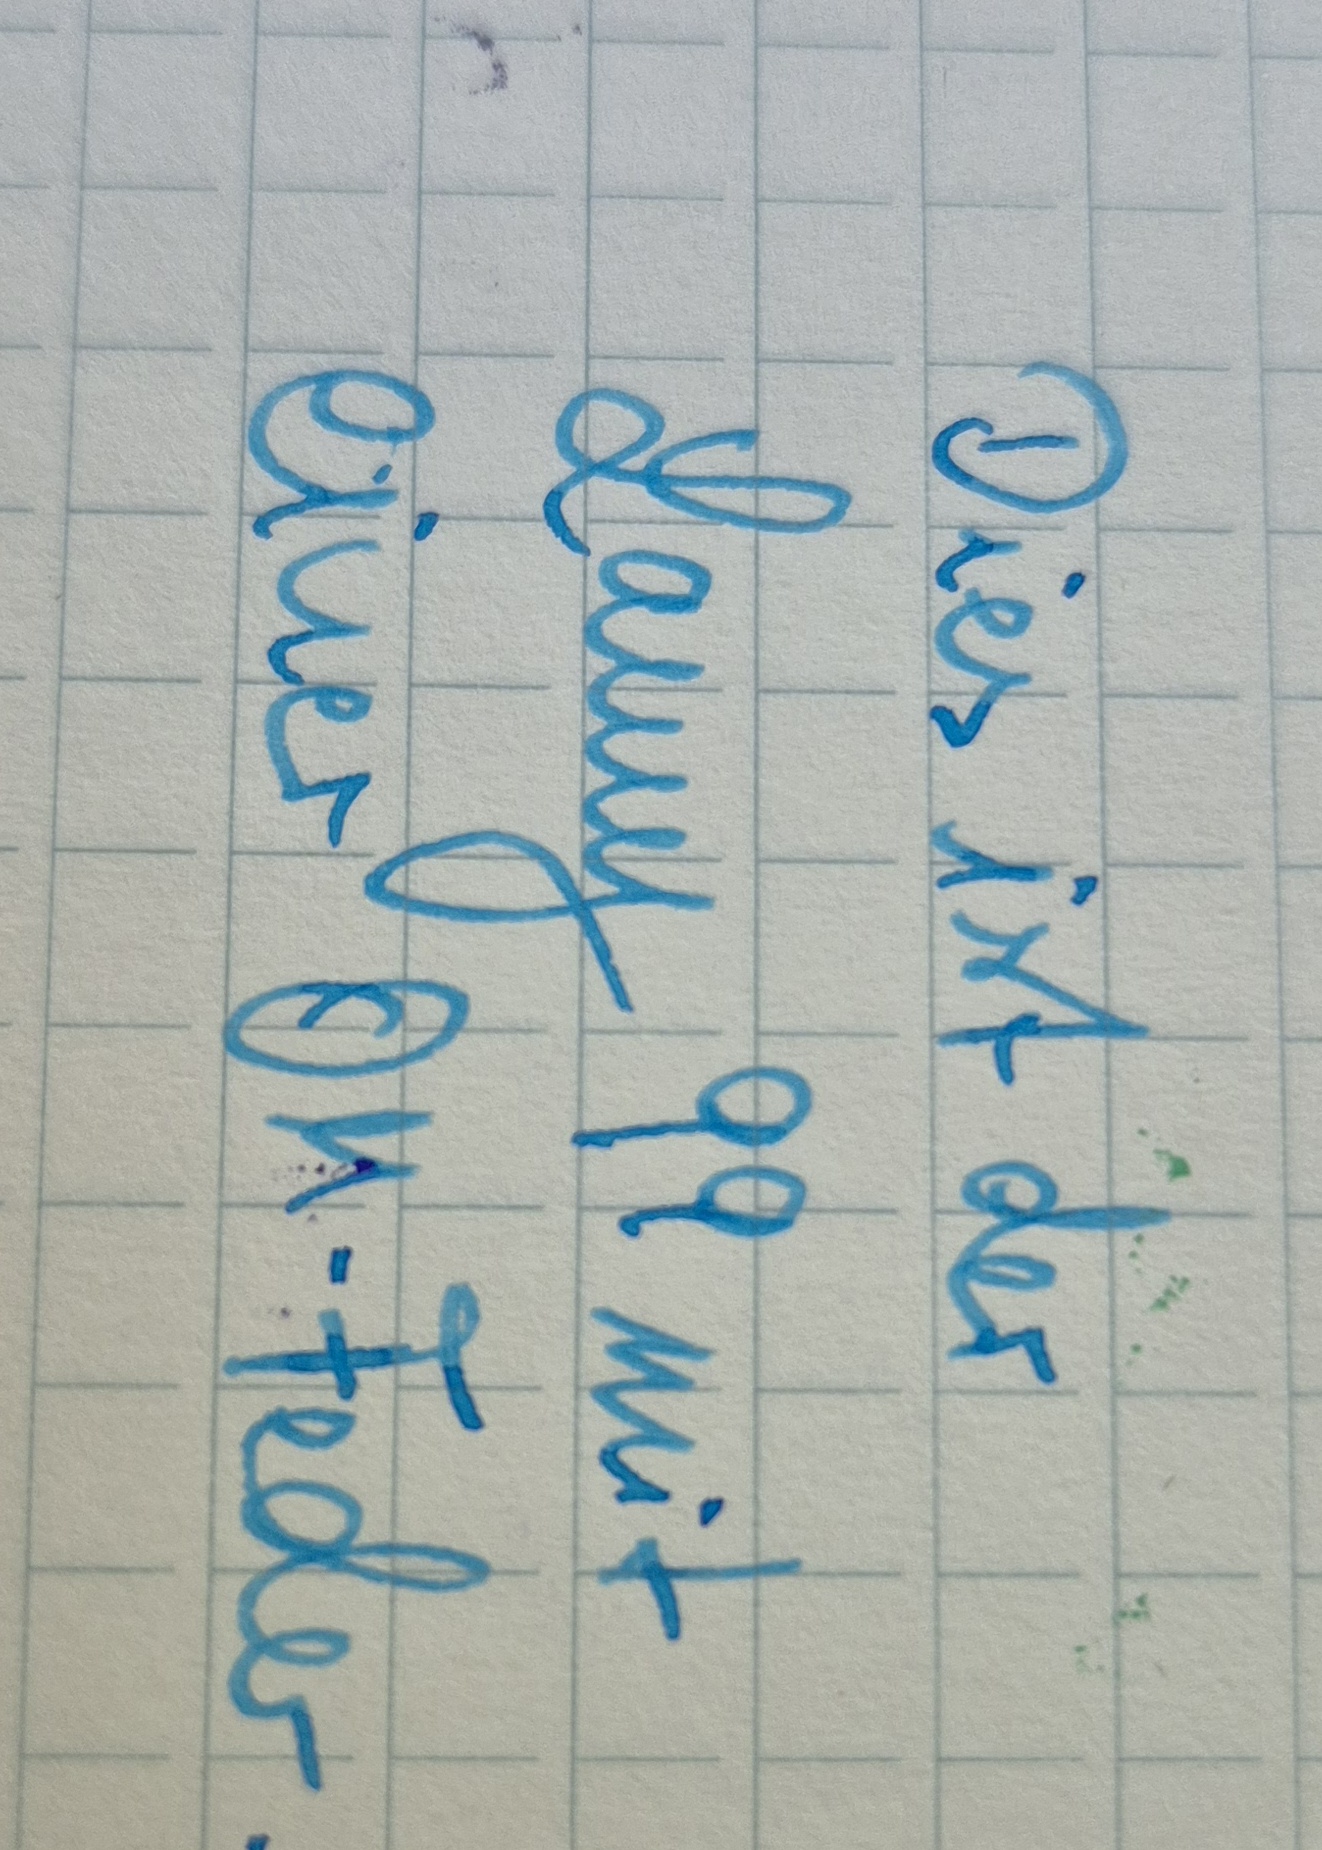 Dies ist der
Lamy 99 mit
einer OM-Feder.